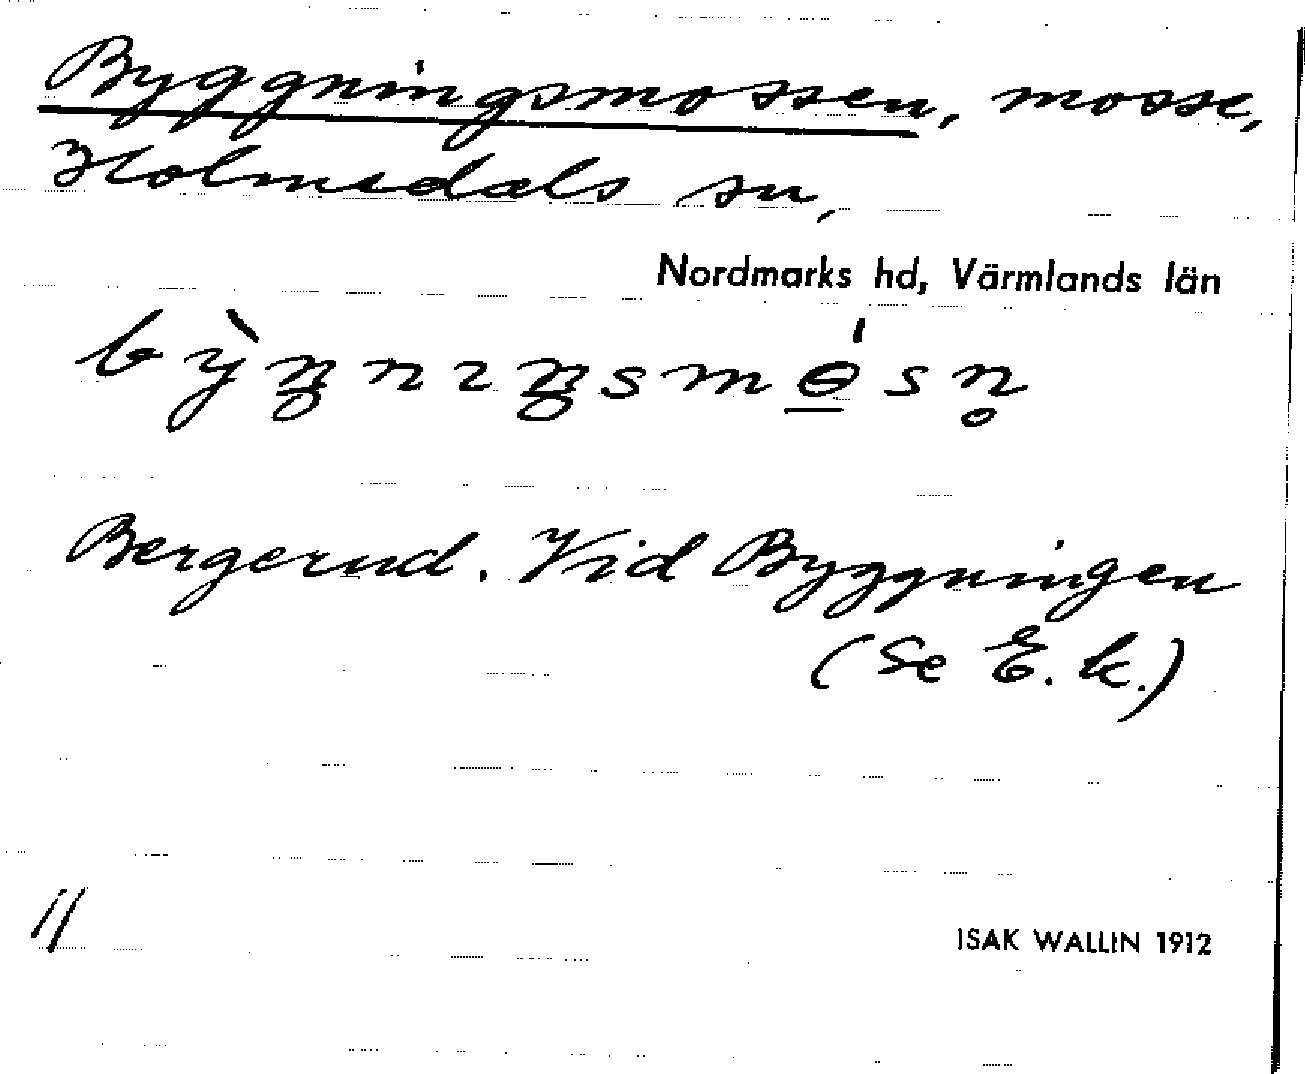 Byggningsmossen, mosse,
Holmedals sn,
Nordmarks hd, Värmlands län
bỳŋnɪŋsmɵ́sn̥
Bergerud. Vid Byggningen
(Se E. k.)
ISAK WALLIN 1912